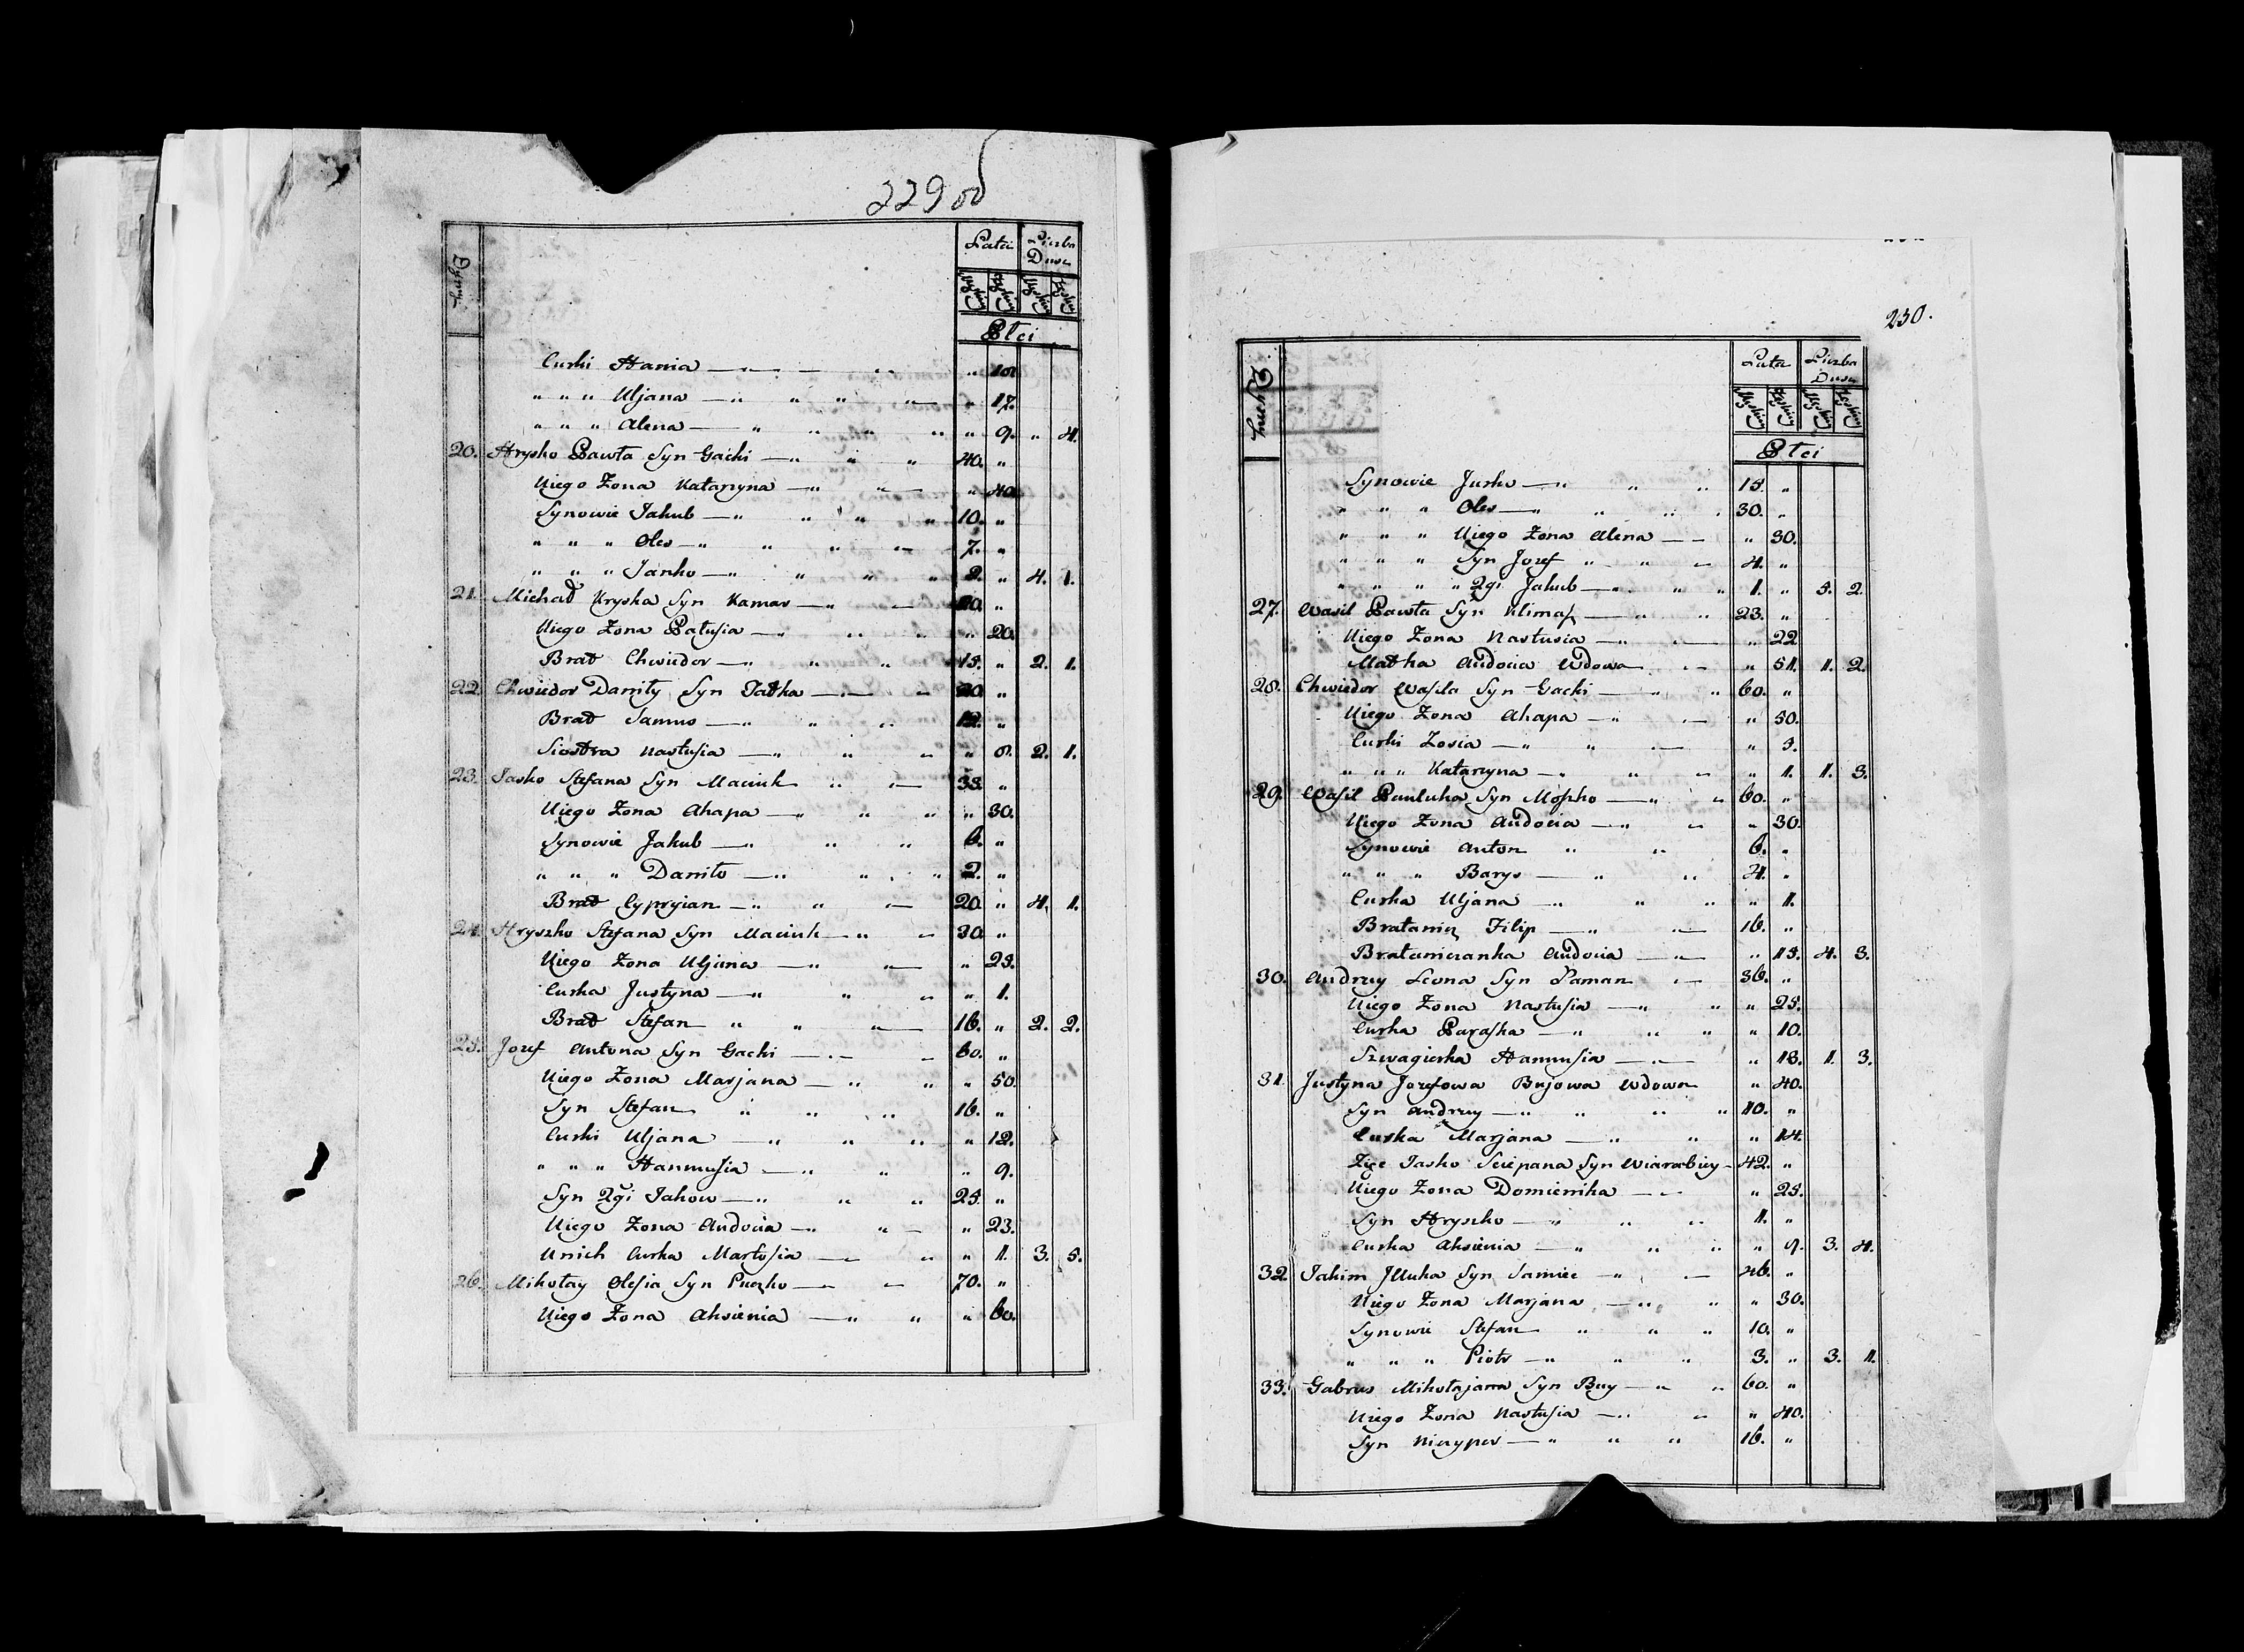 229 об
Dymy
Lata Liczba Dusz
Męskiey Żeńskiey Męskiey Żeńskiey
Płci
Curki Hania — " " 10.
" " " Uljana — " " " " 17.
" " " Alena — " " " " " 9. " 4.
20. Hrysko Pawła Syn Gacki — " " " 40. "
U iego Żona Katarzyna — " " " 40.
Synowie Jakub — " " " " 10. "
" " " Oles — " " " " 7. "
" " " Janko — " " " " 2. " 4. 1.
21. Michał Kryska Syn Kamar — " — 20. "
U iego Żona Patusia — " " " " 20.
Brat Chwiedor — " " " 15. " 2. 1.
22. Chwiedor Daniły Syn Jatka — " 20 "
Brat Samus — " " " 12. "
Siostra Nastusia — " " " " 8. 2. 1.
23. Jasko Stefana Syn Maciuk " — 35. "
U iego Żona Ahapa — " " " " 30.
Synowie Jakub — " " " 6. "
" " " Daniło — " " " 2. "
Brat Cypryian — " " — 20. " 4. 1.
24. Hryszko Stefana Syn Maciuk — " " 30. "
U iego Żona Uljana — " — " 25.
Curka Justyna — " " " " 1.
Brat Stefan " " — 16. " 2. 2.
25. Jozef Antona Syn Gacki — " 60. "
U iego Żona Marjana — " " " 50.
Syn Stefan " " " 16. "
Curki Uljana — " " " " 12.
" " " Hannusia — " " " 9.
Syn 2gi Jakow — " " " 25. "
U iego Żona Audocia — " — " 23.
U nich Curka Martusia — " " 1. 3. 5.
26. Mikołay Olesia Syn Puczko — " — 70. "
U iego Żona Aksienia — " " " 60.
230.
Dymy
Lata Liczba Dusz
Męskiey Żeńskiey Męskiey Żeńskiey
Płci
Synowie Jurko — " " " 15. "
" " " Oles — " " " " 30. "
" " " U iego Żona Alena — — " 30.
" " " Syn Jozef " " — 4. "
" " " " 2gi Jakub — " " " 1. " 5. 2.
27. Wasil Pawła Syn Klimaſz — " " 23. "
U iego Żona Nastusia — " — " 22
Matka Audocia Wdowa — " 51. 1. 2.
28. Chwiedor Wasila Syn Gacki — " " 60. "
U iego Żona Ahapa — " — " 50.
Curki Zosia — " " — " 3.
" " " Katarzyna — " " " " 1. 1. 3.
29. Wasil Pauluka Syn Mośko — " " 60. "
U iego Żona Audocia — " " " 30.
Synowie Anton " " 6. "
" " " Barys — " " 4. "
Curka Uljana — " " " " 1.
Bratanicz Filip — " — 16. "
Bratanicanka Audocia — — " 15. 4. 3.
30. Andrzey Leona Syn Paman — 36. "
U iego Żona Nastusia — " " " 25.
Curka Paraska — " " " " 10.
Szwagierka Hannusia — — " 18. 1. 3.
31. Justyna Jozefowa Bujowa Wdowa " 40.
Syn Andrzey — " " " " 10. "
Curka Marjana — " " " 14.
Zięć Jasko Sciepana Syn Wiarabiey — 42. "
U iego Żona Domienika — — " 25.
Syn Hryszko — " " " 1. "
Curka Aksienia — " " " " 9. 3. 4.
32. Jakim Illuka Syn Samiec — " — 46. "
U iego Żona Marjana — " " " 30.
Synowie Stefan " " " 10. "
" " " Piotr — " " " 3. " 3. 1.
33. Gabrus Mikołajana Syn Buy — " " 60. "
U iego Żona Nastusia — " — " 40.
Syn Niczypor — " " " 16. "